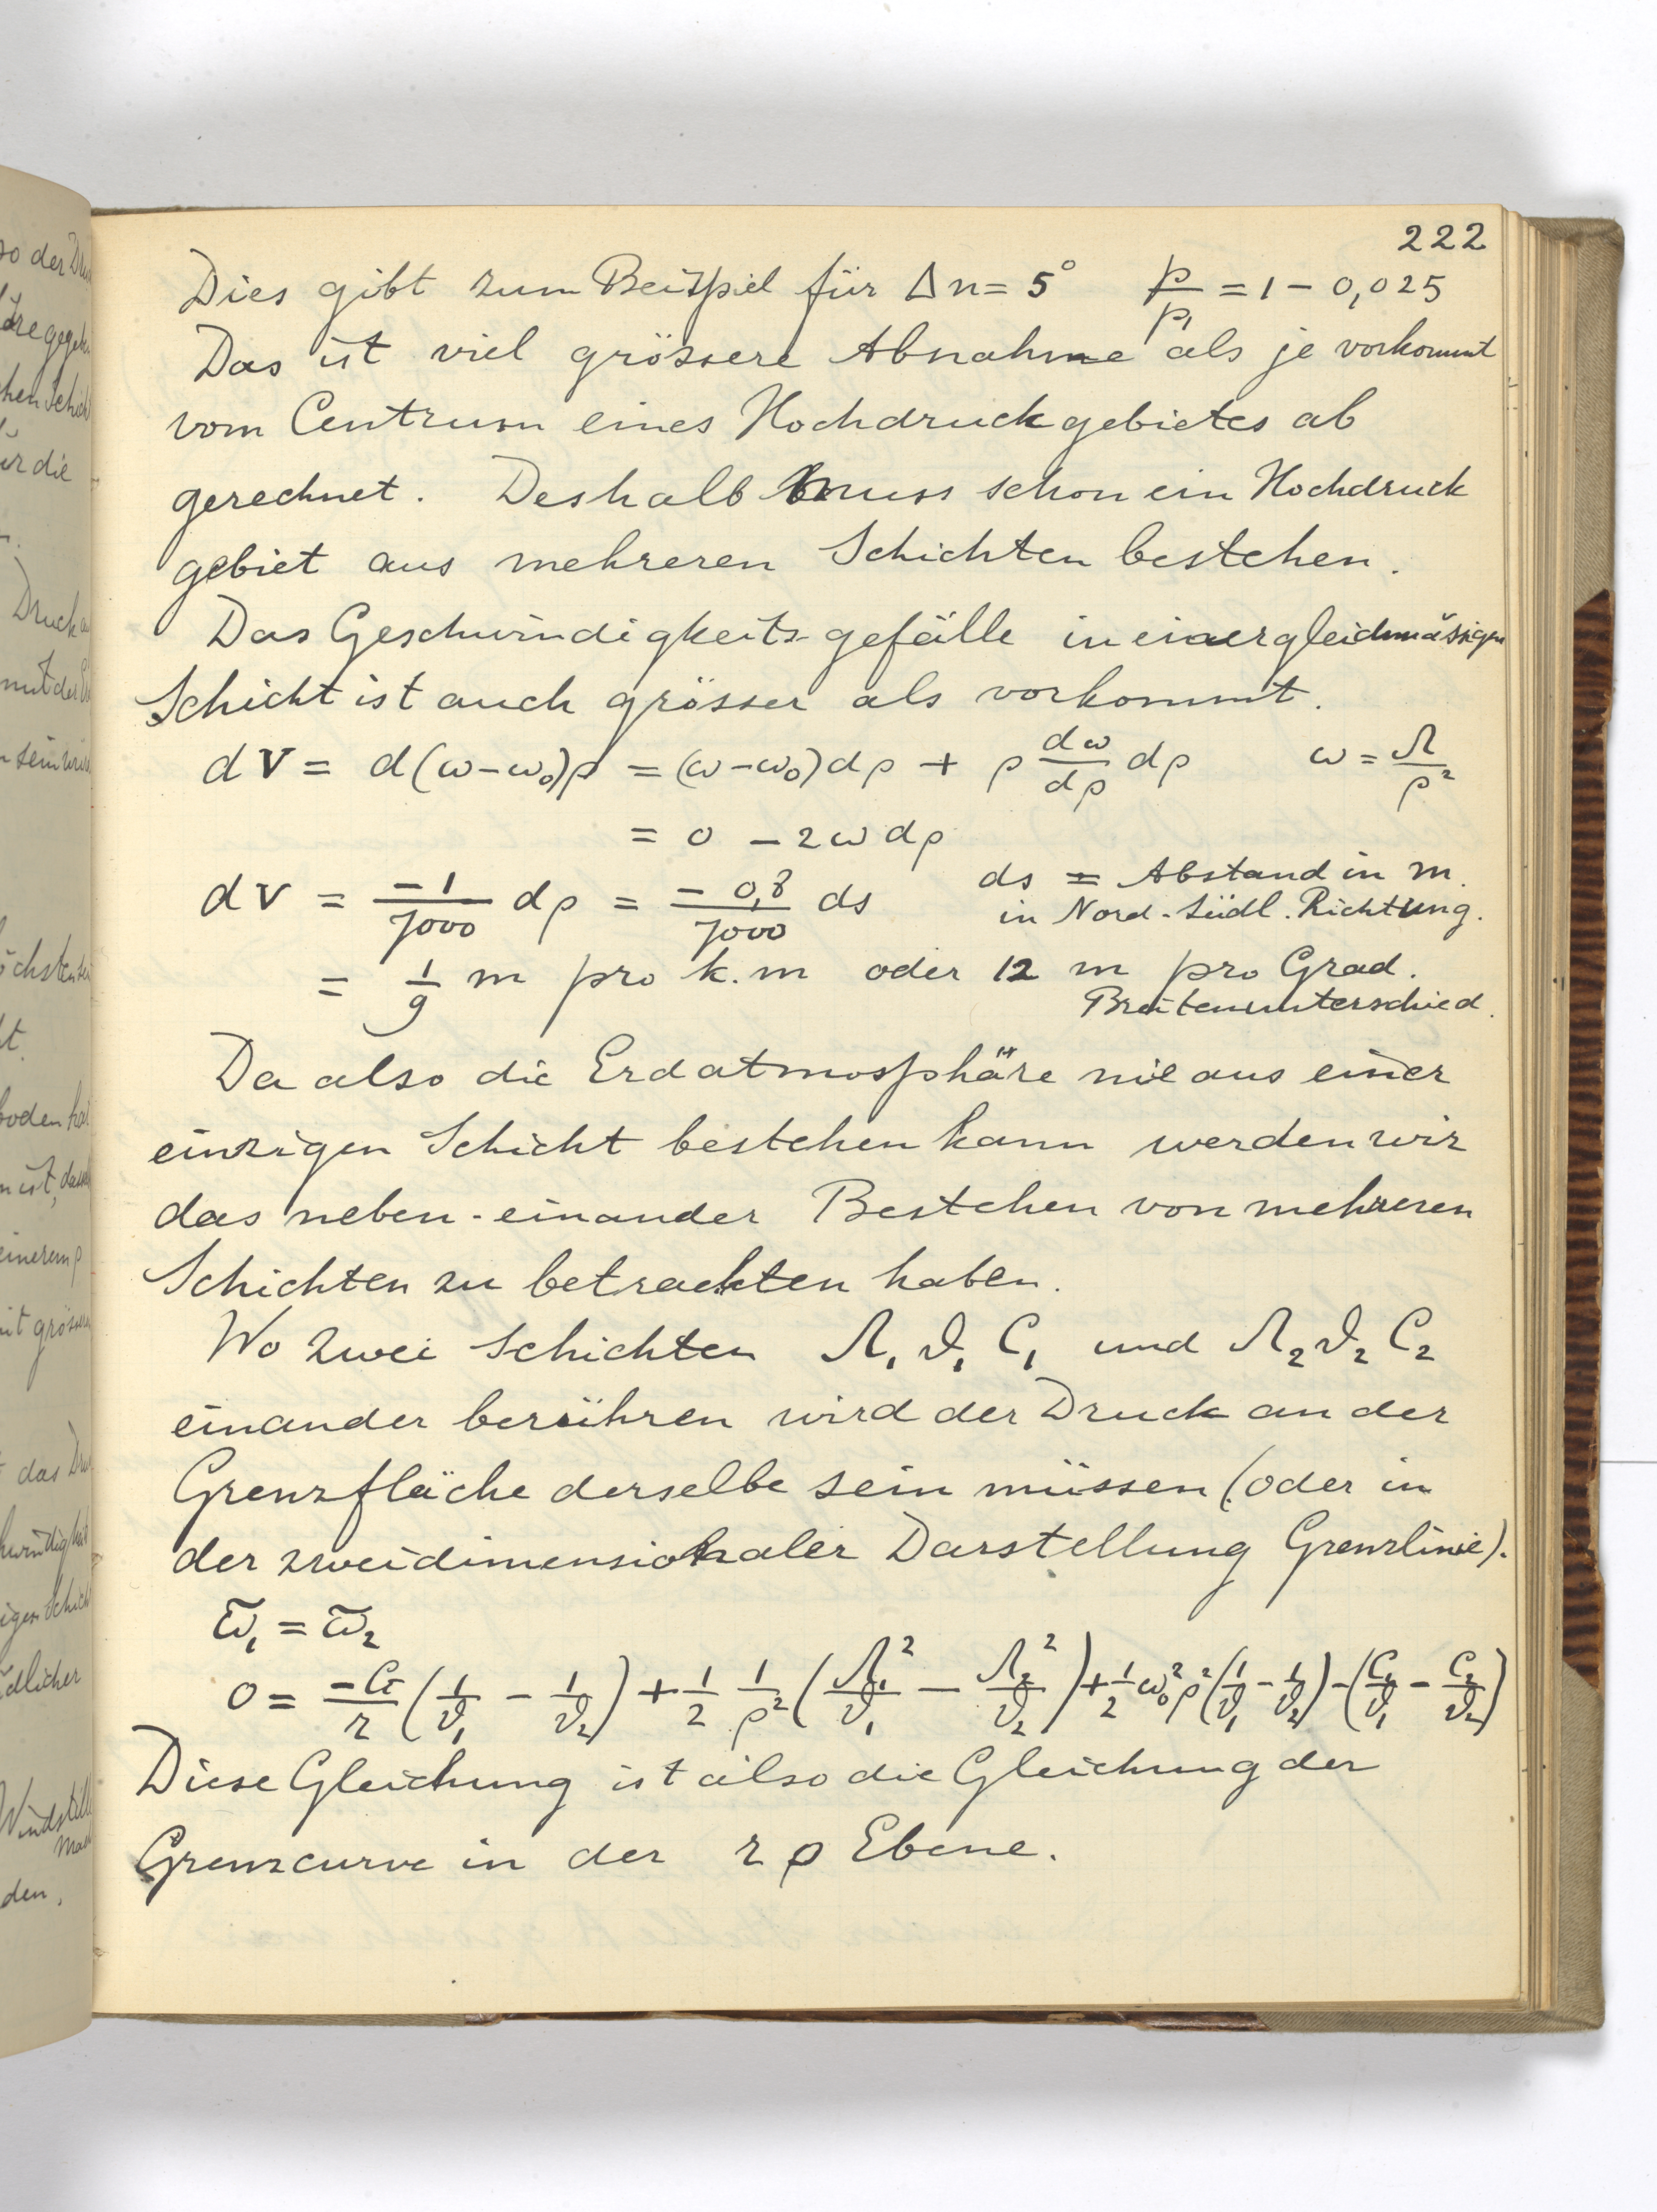 222
Dies gibt zum Beispiel für Δn = 5° p/p₁ = 1 – 0,025
Das ist viel grössere Abnahme als je vorkommt
vom Centrum eines Hochdruckgebietes ab
gerechnet. Deshalb muss schon ein Hochdruck
gebiet aus mehreren Schichten bestehen.
Das Geschwindigkeits-gefälle in einer gleichmässigen
Schicht ist auch grösser als vorkommt.
dV = d(ω–ω₀)ρ = (ω–ω₀)dρ + ρ dω/dρ dρ ω = Λ/ρ²
= 0 – 2ωdρ
dV = –1/7000 dρ = –0,8/7000 ds ds = Abstand in m.
in Nord-Südl. Richtung.
= 1/9 m pro k.m oder 12 m pro Grad.
Breitenunterschied.
Da also die Erdatmosphäre nie aus einer
einzigen Schicht bestehen kann werden wir
das neben-einander Bestehen von mehreren
Schichten zu betrachten haben.
Wo zwei Schichten Λ₁ ϑ₁ C₁ und Λ₂ ϑ₂ C₂
einander berühren wird der Druck an der
Grenzfläche derselbe sein müssen (oder in
der zweidimensionaler Darstellung Grenzlinie).
ϖ₁ = ϖ₂
0 = –G/r (1/ϑ₁ – 1/ϑ₂) + 1/2 1/ρ² (Λ₁²/ϑ₁ – Λ₂²/ϑ₂) + 1/2 ω₀²ρ² (1/ϑ₁ – 1/ϑ₂) – (C₁/ϑ₁ – C₂/ϑ₂)
Diese Gleichung ist also die Gleichung der
Grenzcurve in der r ρ Ebene.